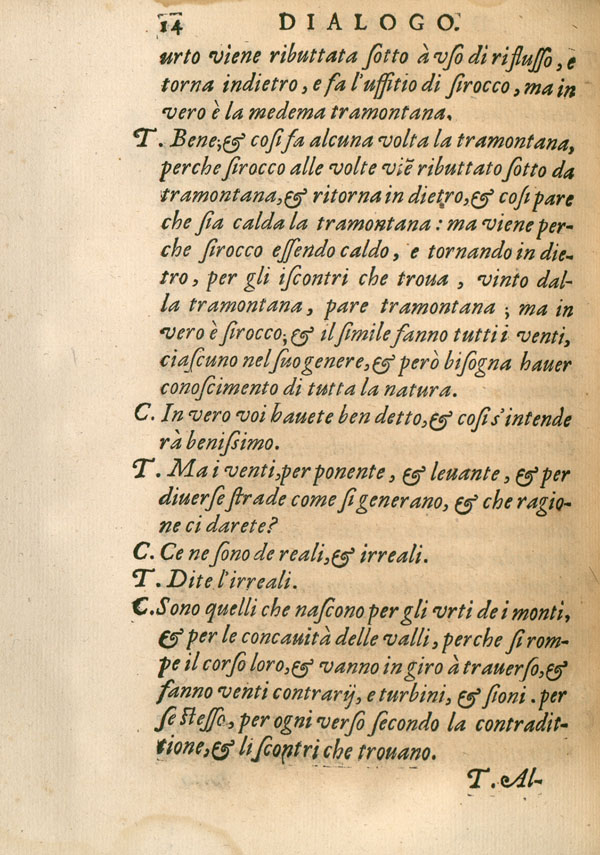 14 DIALOGO.
urto viene ributtata ſotto à vſo di rifluſſo, e
torna indietro, e fa l'uffitio di ſirocco, ma in
vero è la medema tramontana.
T. Bene; & coſi fa alcuna volta la tramontana,
perche ſirocco alle volte viē ributtato ſotto da
tramontana, & ritorna in dietro, & coſi pare
che ſia calda la tramontana: ma viene per-
che ſirocco eſſendo caldo, e tornando in die-
tro, per gli iſcontri che troua, vinto dal-
la tramontana, pare tramontana; ma in
vero è ſirocco; & il ſimile fanno tutti i venti,
ciaſcuno nel ſuo genere, & però biſogna hauer
conoſcimento di tutta la natura.
C. In vero voi hauete ben detto, & coſi s'intende
rà beniſsimo.
T. Ma i venti, per ponente, & leuante, & per
diuerſe ſtrade come ſi generano, & che ragio-
ne ci darete?
C. Ce ne ſono de reali, & irreali.
T. Dite l'irreali.
C. Sono quelli che naſcono per gli vrti de i monti,
& per le concauità delle valli, perche ſi rom-
pe il corſo loro, & vanno in giro à trauerſo, &
fanno venti contrarij, e turbini, & ſioni. per
ſe ſteſſo, per ogni verſo ſecondo la contradit-
tione, & li ſcontri che trouano.
T. Al-